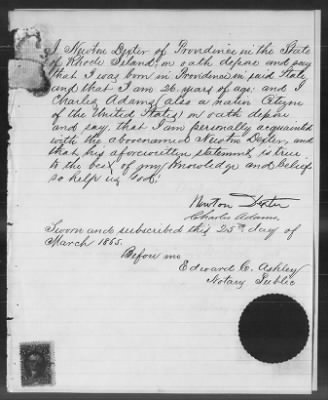 I Newton Dexter of Providence in the State
of Rhode Island, on oath depose and say
that I was born in Providence in said State
and that I am 26 years of age; and I
Charles Adams (also a native Citizen
of the United States) on oath depose
and say, that I am personally acquainted
with the abovenamed Newton Dexter, and
that his aforewritten statement is true
to the best of my knowledge and belief
so help us God.
Newton Dexter
Charles Adams
Sworn and subscribed this 25th day of
March 1865.
Before me
Edward C. Ashley
Notary Public